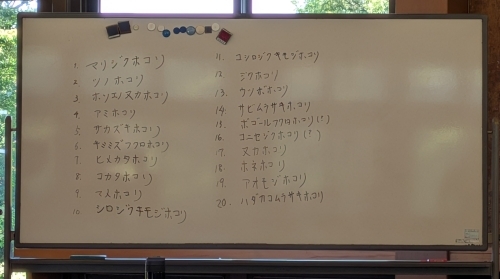 1. マリジクホコリ
2. ツノホコリ
3. ホソエノヌカホコリ
4. アミホコリ
5. サカズキホコリ
6. キミミズフクロホコリ
7. ヒメカタホコリ
8. コカタホコリ
9. マメホコリ
10. シロジクキモジホコリ
11. コシロジクキモジホコリ
12. ジクホコリ
13. ウツボホコリ
14. サビムラサキホコリ
15. ボゴールフクロホコリ(?)
16. コニセジクホコリ(?)
17. ヌカホコリ
18. ホネホコリ
19. アオモジホコリ
20. ハダカコムラサキホコリ